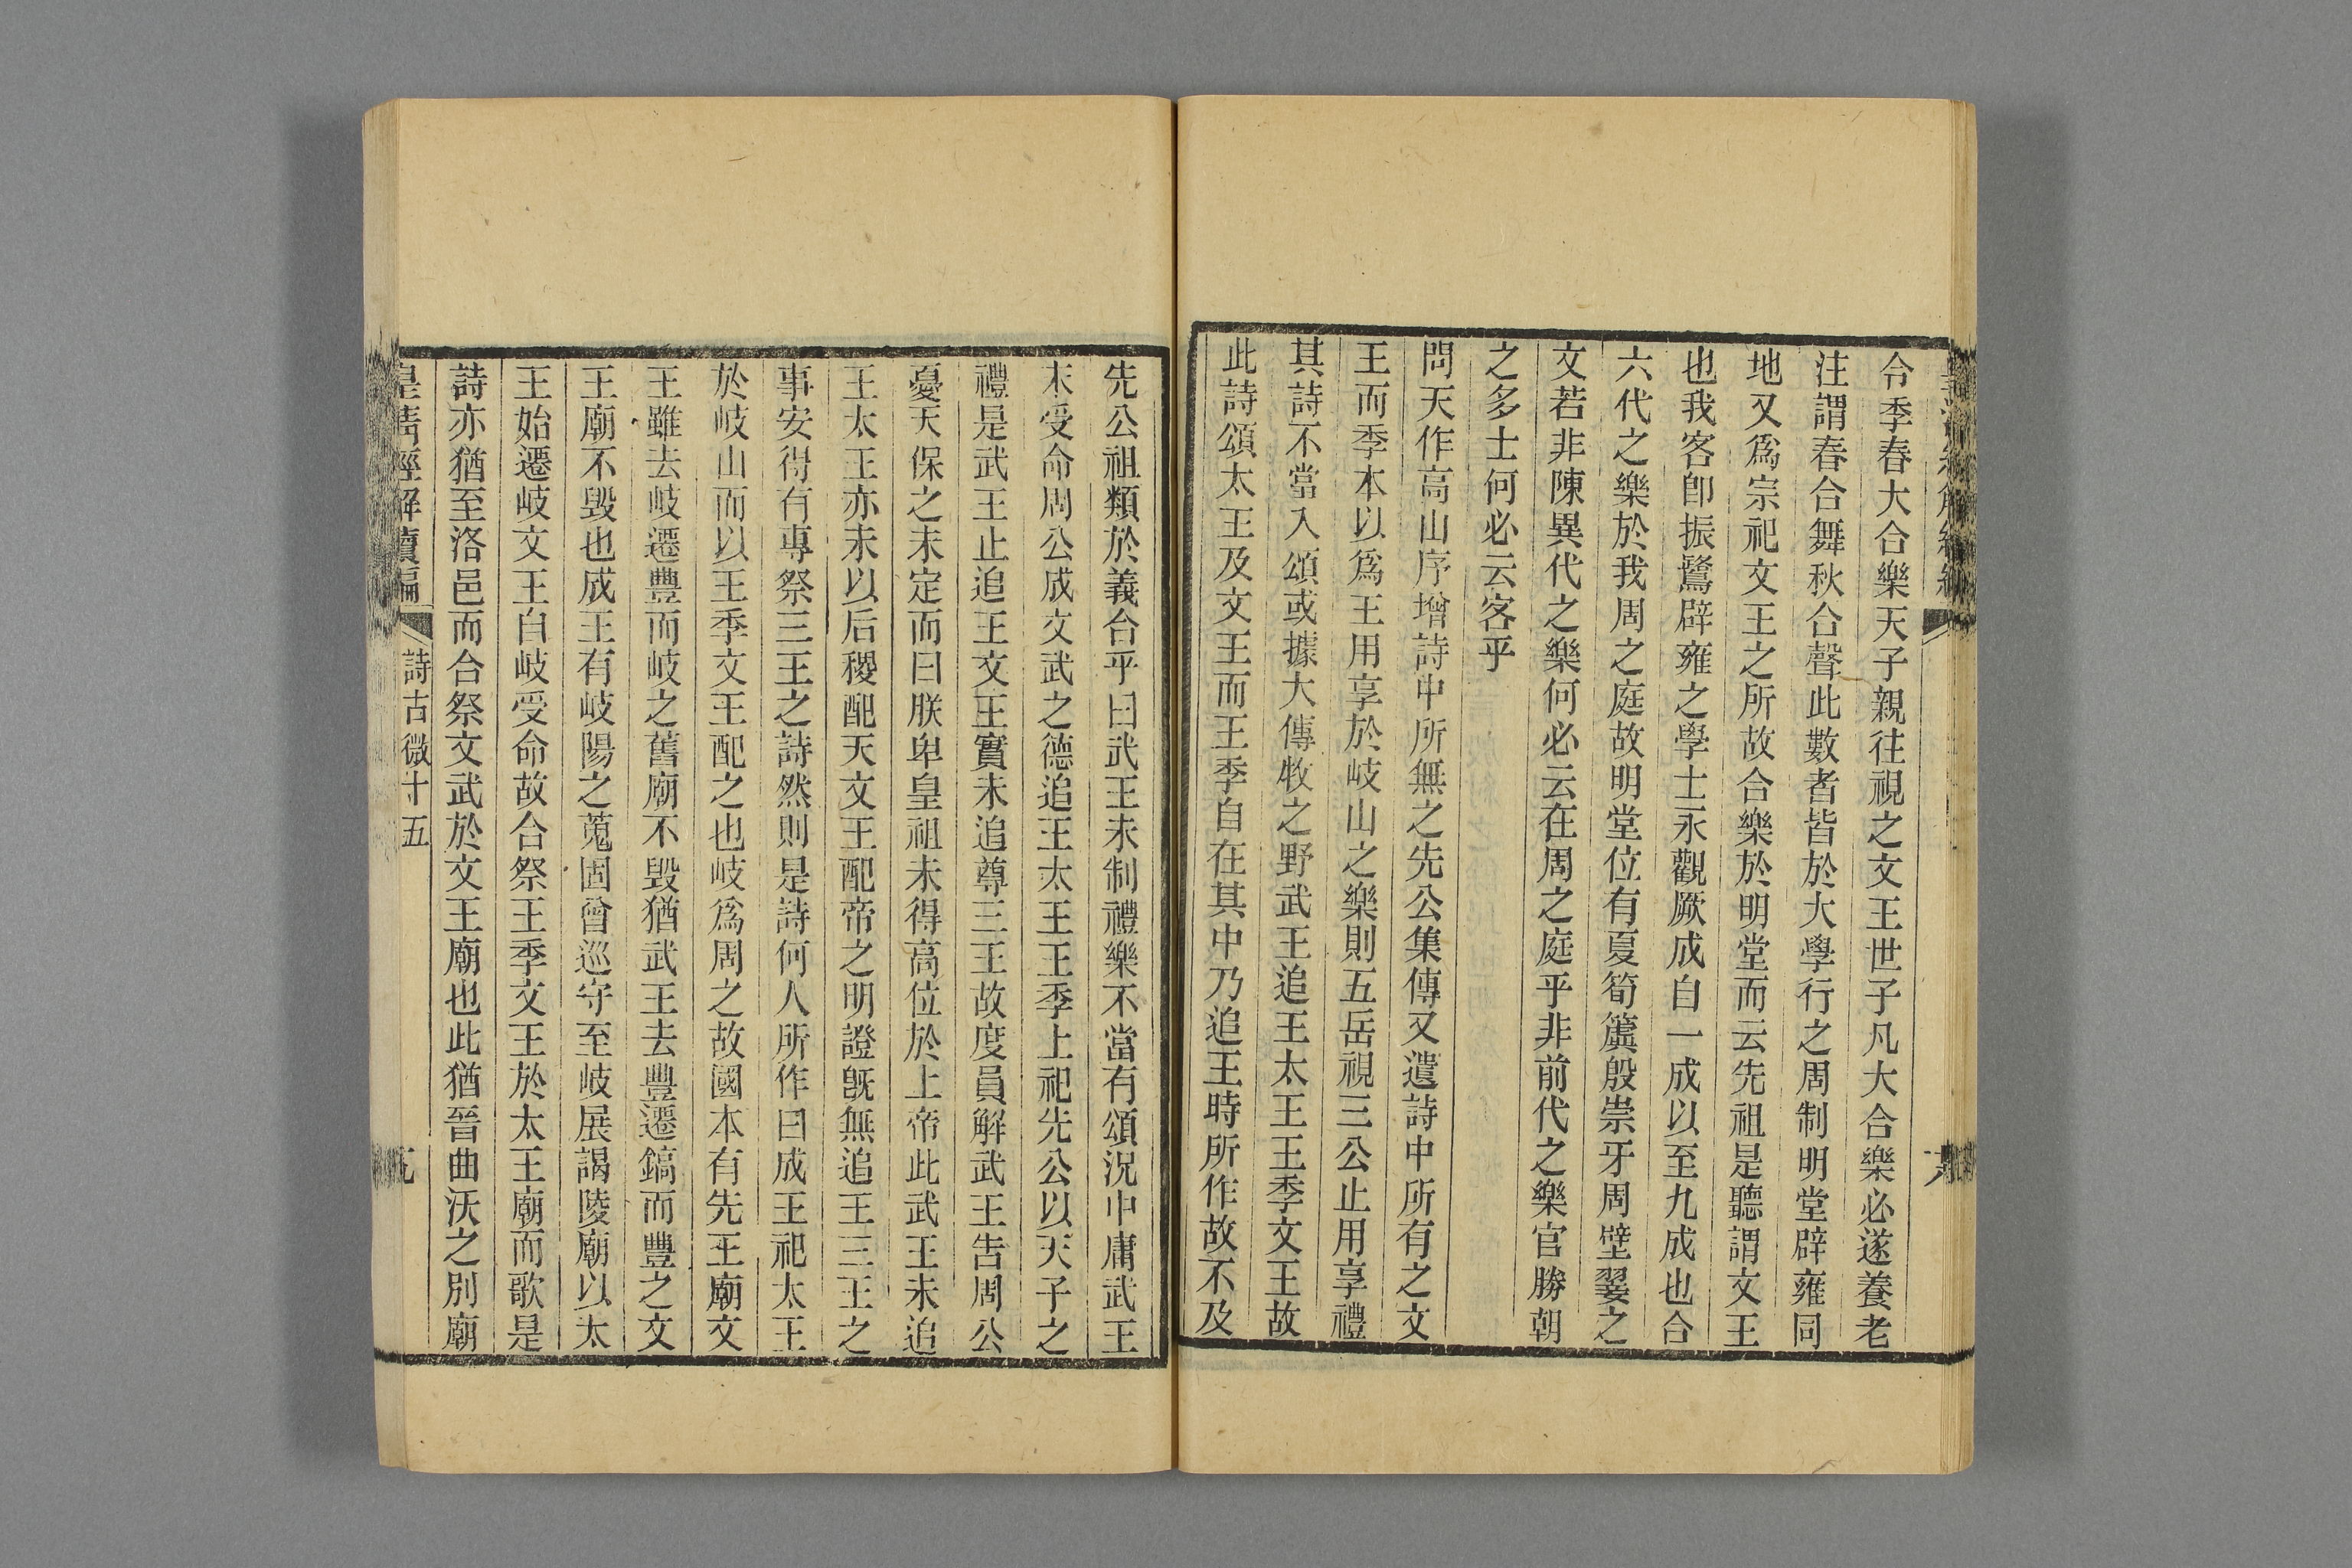 令季春大合樂天子親往視之文王世子凡大合樂必遂養老
注謂春合舞秋合聲此數者皆於大學行之周制明堂辟雍同
地又爲宗祀文王之所故合樂於明堂而云先祖是聽謂文王
也我客卽振鷺辟雍之學士永觀厥成自一成以至九成也合
六代之樂於我周之庭故明堂位有夏筍簴殷崇牙周壁翣之
文若非陳異代之樂何必云在周之庭乎非前代之樂官勝朝
之多士何必云客乎
問天作高山序增詩中所無之先公集傳又遺詩中所有之文
王而季本以爲王用享於岐山之樂則五岳視三公止用享禮
其詩不當入頌或據大傳牧之野武王追王太王王季文王故
此詩頌太王及文王而王季自在其中乃追王時所作故不及
先公祖類於義合乎曰武王未制禮樂不當有頌況中庸武王
末受命周公成文武之德追王太王王季上祀先公以天子之
禮是武王止追王文王實未追尊三王故度員解武王告周公
憂天保之未定而曰朕卑皇祖未得高位於上帝此武王未追
王太王亦未以后稷配天文王配帝之明證旣無追王三王之
事安得有專祭三王之詩然則是詩何人所作曰成王祀太王
於岐山而以王季文王配之也岐爲周之故國本有先王廟文
王雖去岐遷豐而岐之舊廟不毀猶武王去豐遷鎬而豐之文
王廟不毀也成王有岐陽之蒐固曾巡守至岐展謁陵廟以太
王始遷岐文王自岐受命故合祭王季文王於太王廟而歌是
詩亦猶至洛邑而合祭文武於文王廟也此猶晉曲沃之別廟
皇清經解續編
詩古微十五